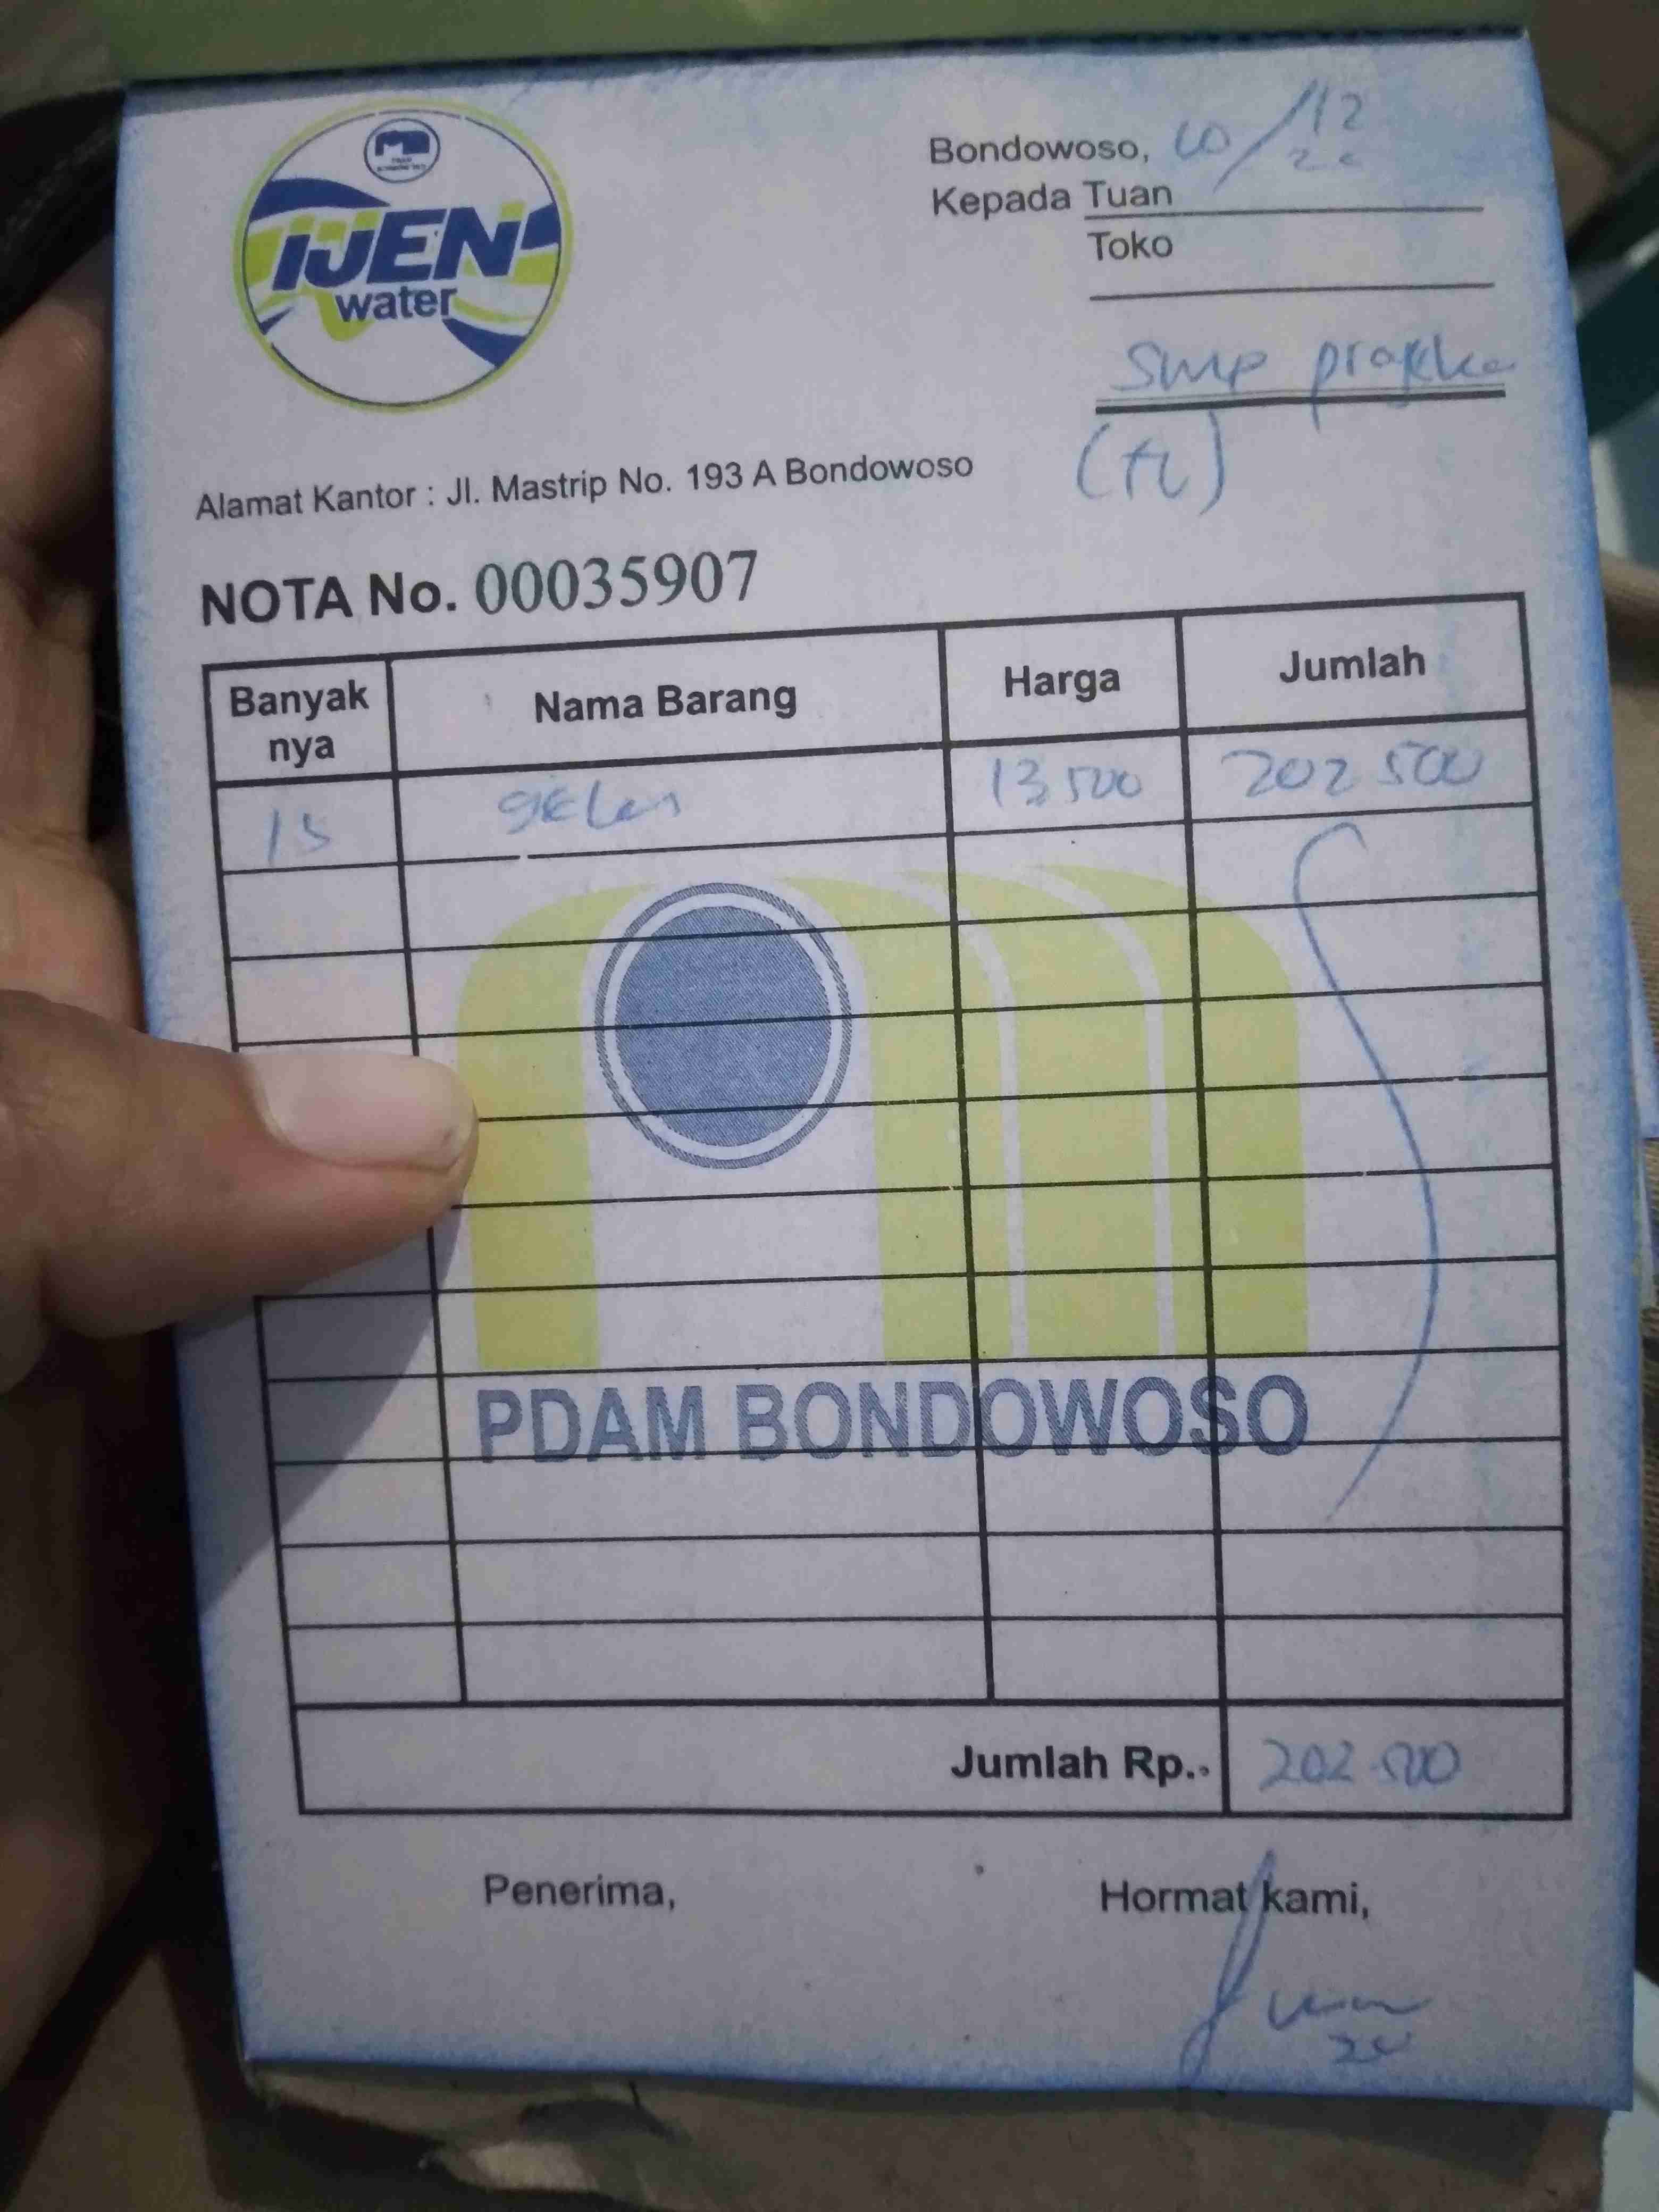 IJEN
water
Bondowoso, /12
Kepada Tuan
Toko
SMP
Alamat Kantor : Jl. Mastrip No. 193 A Bondowoso
NOTA No. 00035907
Banyak nya Nama Barang Harga Jumlah
15 gelas 13 500 202 500
PDAM BONDOWOSO
Jumlah Rp.. 202.500
Penerima, Hormat kami,